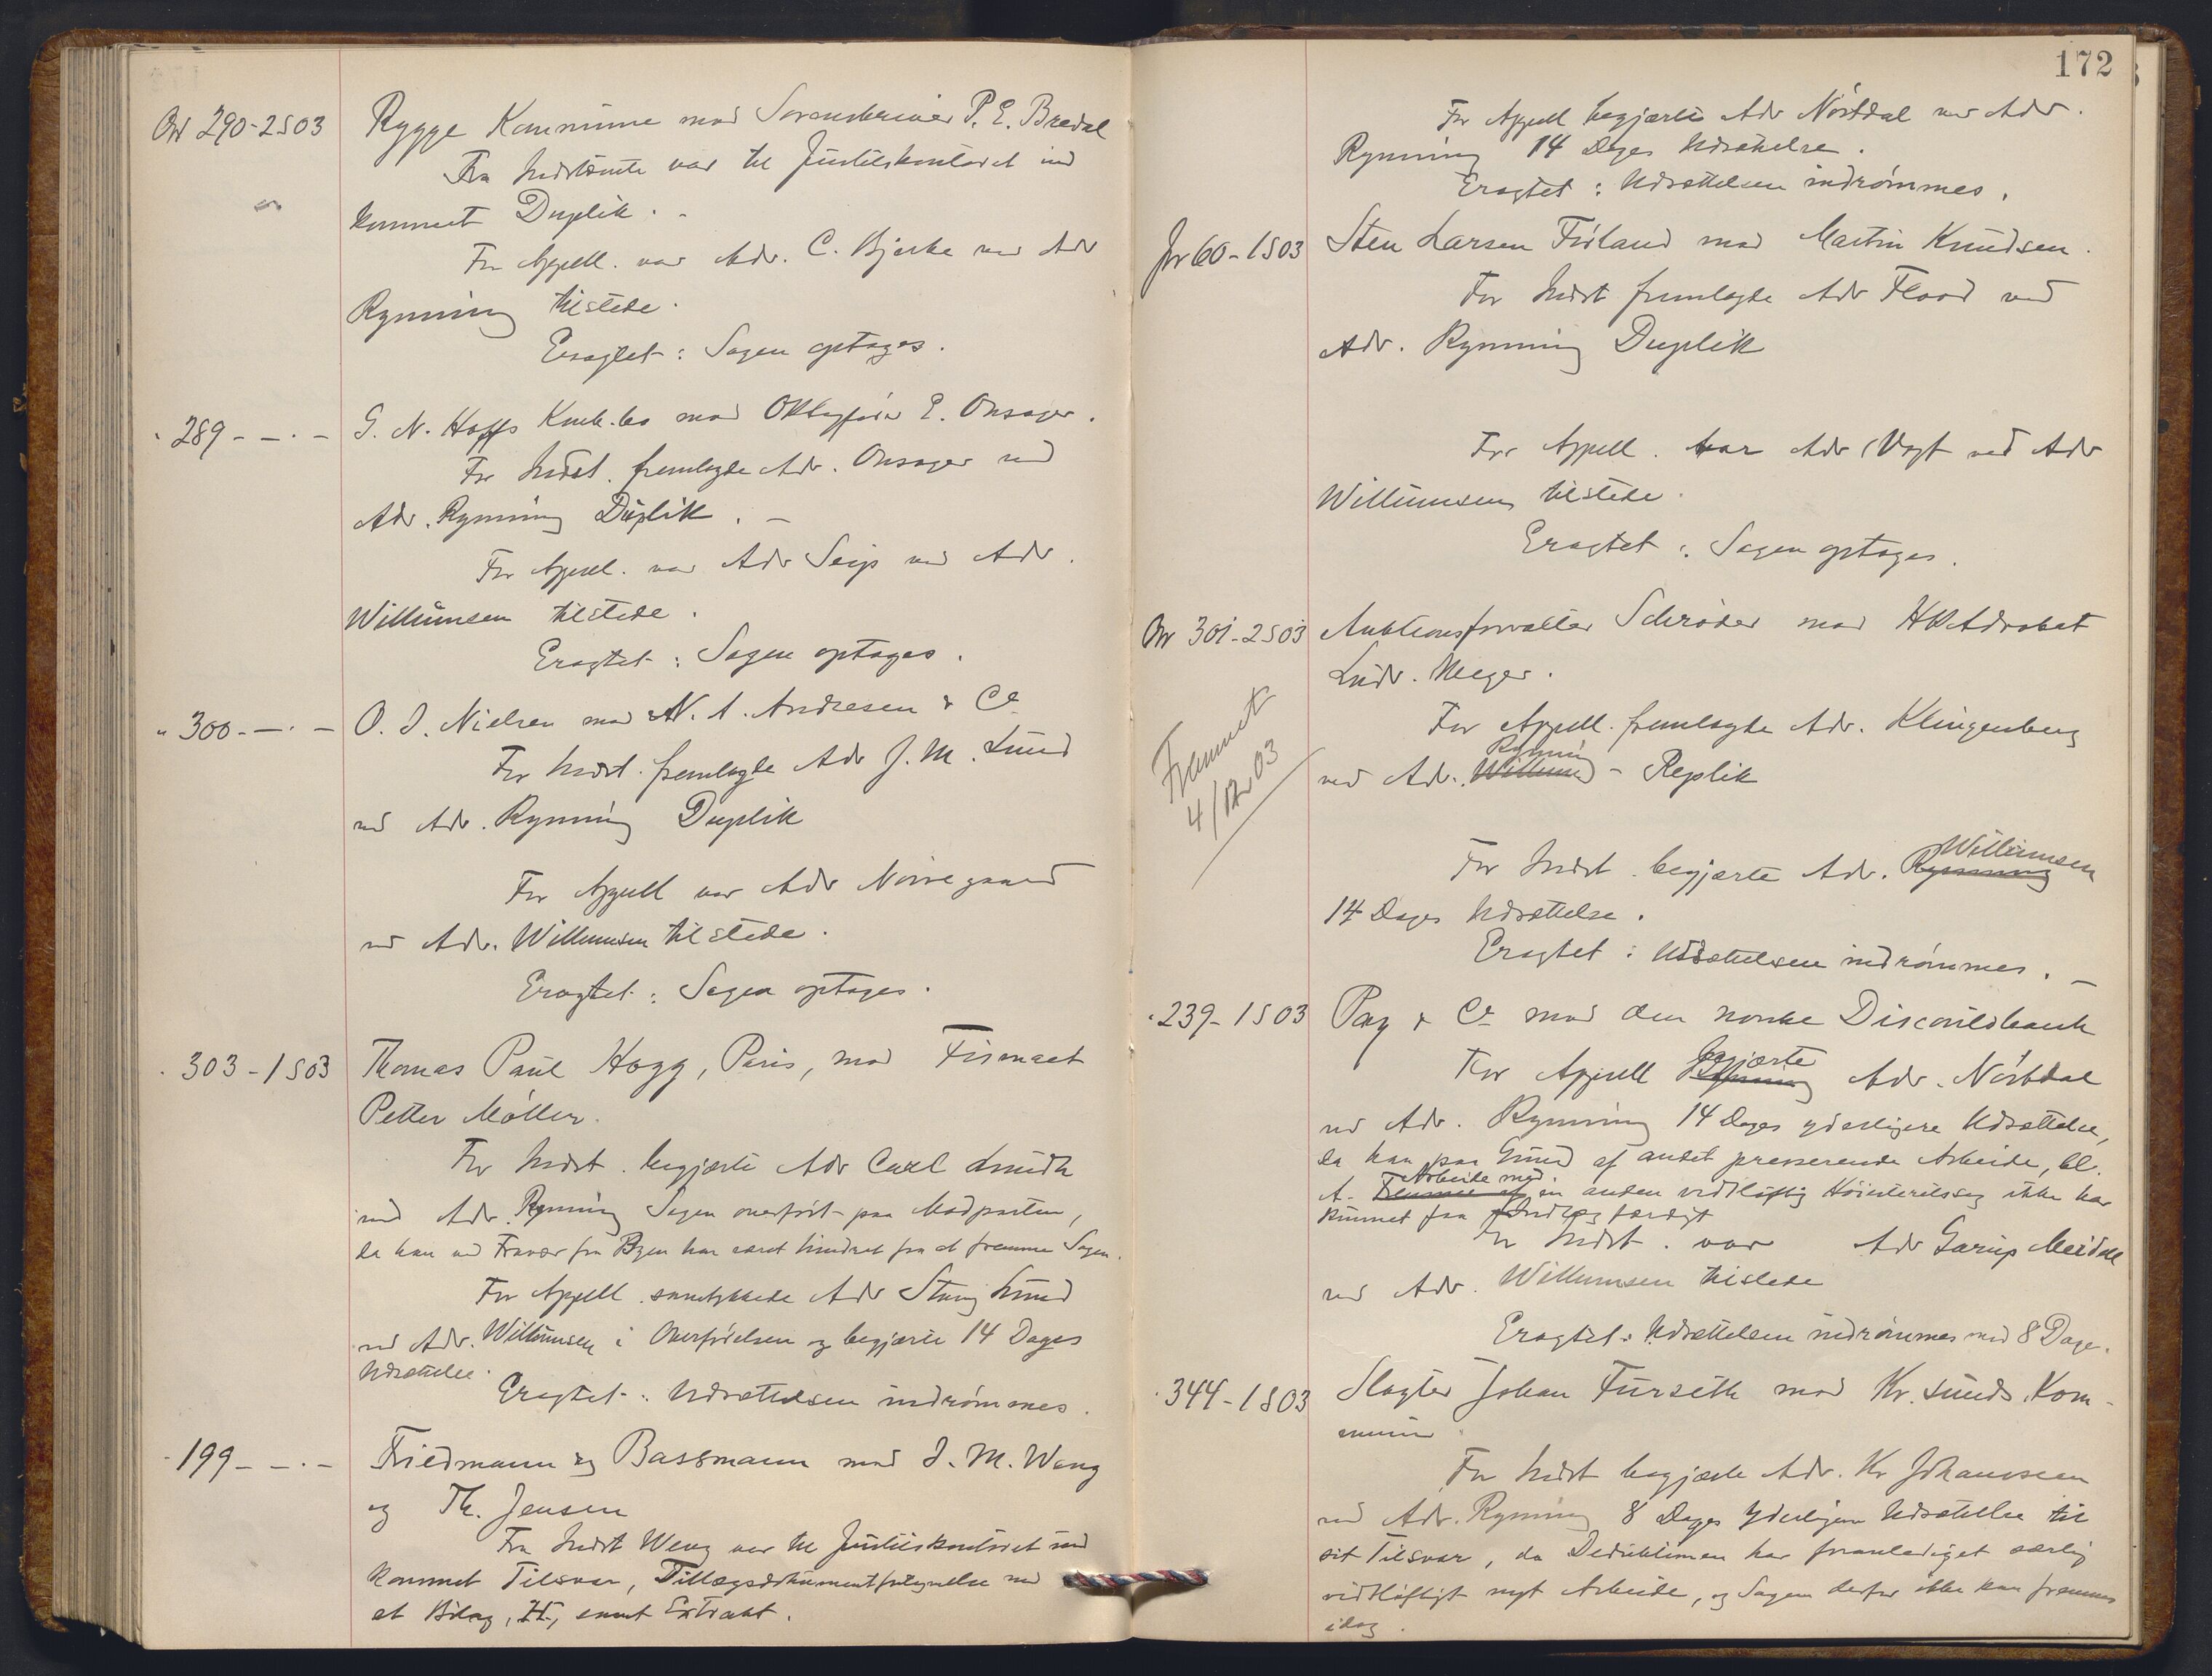 Ov 290-2 S 03 Rygge Kommune mod Sorenskriver P. E. Bredal
Fra Indstevnte var til Justitskontoret ind
kommet Duplik. -
For Appell. var Adv. C. Bjerke ved Adv
Rynning tilstede.
Eragtet: Sagen optages.
" 289 - - . - G. N. Hoffs Konk.bo mod OKsagfører E. Onsager.
For Indst. fremlagde Adv. Onsager ved
Adv. Rynning Duplik. -
For Appell. var Adv Seip ved Adv.
Willumsen tilstede.
Eragtet: Sagen optages.
" 300 - - . - O. J. Nielsen mod N. A. Andresen & Co
For Indst. fremlagde Adv J. M. Lund
ved Adv. Rynning Duplik
For Appell var Adv Nørregaard
ved Adv. Willumsen tilstede.
Eragtet: Sagen optages.
" 303 - 1 S 03 Thomas Paul Hogg, Paris, mod Firmaet
Petter Møller.
For Indst. begjærte Adv Carl Lundh
ved Adv. Rynning Sagen overført paa Modparten,
da han ved Fravær fra Byen har været hindret fra at fremme Sagen.
For Appell. samtykkede Adv Stang Lund
ved Adv. Willumsen i Overførelsen og begjærte 14 Dages
Udsættelse.
Eragtet: Udsættelsen indrømmes.
" 199 - - . - Friedmann og Bassmann mod J. M. Wang
og Th. Jensen
Fra Indst Weng var til Justitskontoret ind
kommet Tilsvar, Tillægsdokumentfølgnelse med
et Bilag, H, samt Extrakt.
172
For Appell begjærte Adv Nörbdal ved Adv.
Rynning 14 Dages Udsættelse.
Eragtet: Udsættelsen indrømmes.
Jvr 60 - 1 S 03 Sten Larsen Firland mod Martin Knudsen.
For Indst fremlagde Adv Flood ved
Adv. Rynning Duplik
For Appell. var Adv Vogt ved Adv
Willumsen tilstede.
Eragtet: Sagen optages.
Ov 301 - 2 S 03 Auktionsforvalter Schrøder mod HRAdvokat
Ludv. Meyer.
For Appell. fremlagde Adv. Klingenberg
Rynning
ved Adv. Willums - Replik
Fremmet
4/12 03
Willumsen
For Indst. begjærte Adv. Rynning
14 Dages Udsættelse.
Eragtet: Udsættelsen indrømmes. -
" 239 - 1 S 03 Pay & Co mod den norske Discontobank
begjærte
For Appell Rynning Adv. Nörbdal
ved Adv. Rynning 14 Dages yderligere Udsættelse,
da han paa Grund af andet presserende Arbeide, bl.
Arbeide med
A. Fremme af en anden vidtløftig Høiesteretssag ikke har
kunnet faa Indlæg færdigt
For Indst. var Adv Garup Meidell
ved Adv. Willumsen tilstede
Eragtet: Udsættelsen indrømmes med 8 Dage.
" 344 - 1 S 03 Slagter Johan Furseth mod Kr.sunds Kom-
mune.
For Indst begjærte Adv. Kr Johanssen
ved Adv. Rynning 8 Dages yderligere Udsættelse til
sit Tilsvar, da Deduktionen har foranlediget særlig
vidtløftigt nyt Arbeide, og Sagen derfor ikke kan fremmes
idag.